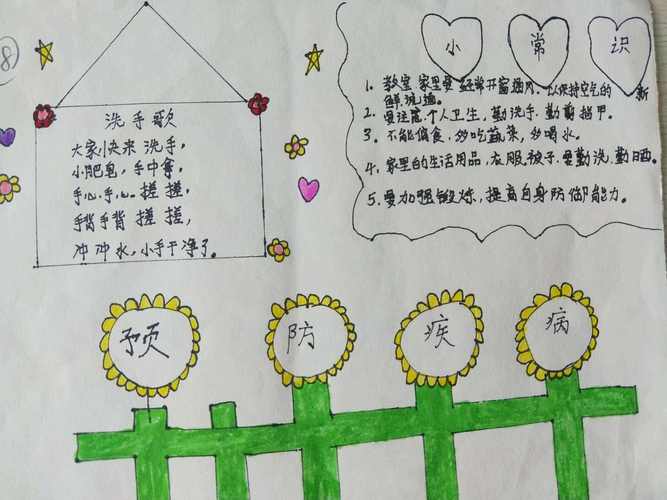 8
洗手歌
大家快来洗手,
小肥皂,手中拿,
手心手心搓搓,
手背手背搓搓,
冲冲水,小手干净了。
小常识
1. 教室家里要经常开窗通风,以保持空气的新
鲜流通。
2. 要注意个人卫生,勤洗手.勤剪指甲。
3. 不能偏食,多吃蔬菜,多喝水。
4. 家里的生活用品,衣服被子.要勤洗.勤晒。
5. 要加强锻炼,提高自身防御能力。
预防疾病